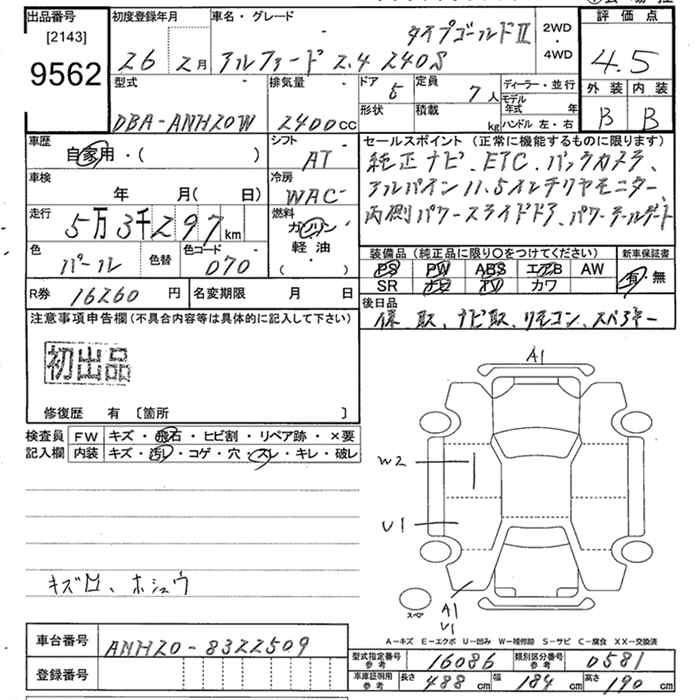 出品番号
[2143]
9562
初度登録年月
26 年 2 月
車名・グレード
タイプゴールドⅡ
アルファード 2.4 240S
2WD
・
4WD
評価点
4.5
外装 内装
B B
型式
DBA-ANH20W
排気量
2400cc
ドア 5
定員 7人
形状
積載 kg
ディーラー・並行
モデル年式 年
ハンドル 左・右
車歴
自家用・( )
シフト
AT
車検
年 月( 日)
冷房
WAC
走行
5万3千297km
燃料
ガソリン
軽油
・( )
色
パール
色替
色コード
070
R券 16260円
名変期限 月 日
セールスポイント(正常に機能するものに限ります)
純正ナビ、ETC、バックカメラ、
アルパイン11.5インチリヤモニター、
両側パワースライドドア、パワーテールゲート
装備品(純正品に限り○をつけてください)
新車保証書
PS PW ABS エアB AW
SR ナビ TV カワ
有・無
後日品
保、取、ナビ取、リモコン、スペアキー
注意事項申告欄(不具合内容等は具体的に記入して下さい)
初出品
修復歴 有 [箇所 ]
検査員記入欄
FW キズ・飛石・ヒビ割・リペア跡・×要
内装 キズ・汚れ・コゲ・穴・スレ・キレ・破レ
キズ凹、ホシュウ
A1
W2
U1
スペア
A1
U1
A-キズ E-エクボ U-凹み W-補修跡 S-サビ C-腐食 XX-交換済
車台番号 ANH20-8322509
登録番号
型式指定番号 参考 16086
類別区分番号 参考 0581
車庫証明用 参考 長さ 488cm 幅 184cm 高さ 190cm